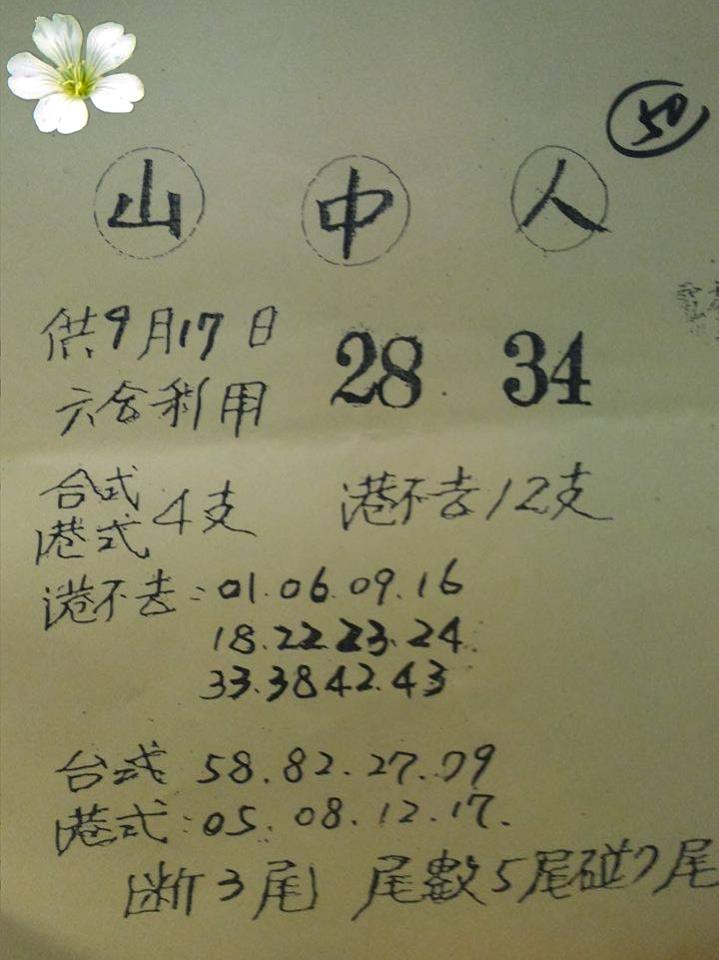 50
山 中 人
供9月17日
六合利用
28. 34
台式
港式 4支 港不去12支
港不去:01.06.09.16
18.22.23.24.
33.3842.43
台式 58.82.27.79
港式:05.08.12.17.
断3尾 尾數5尾碰7尾